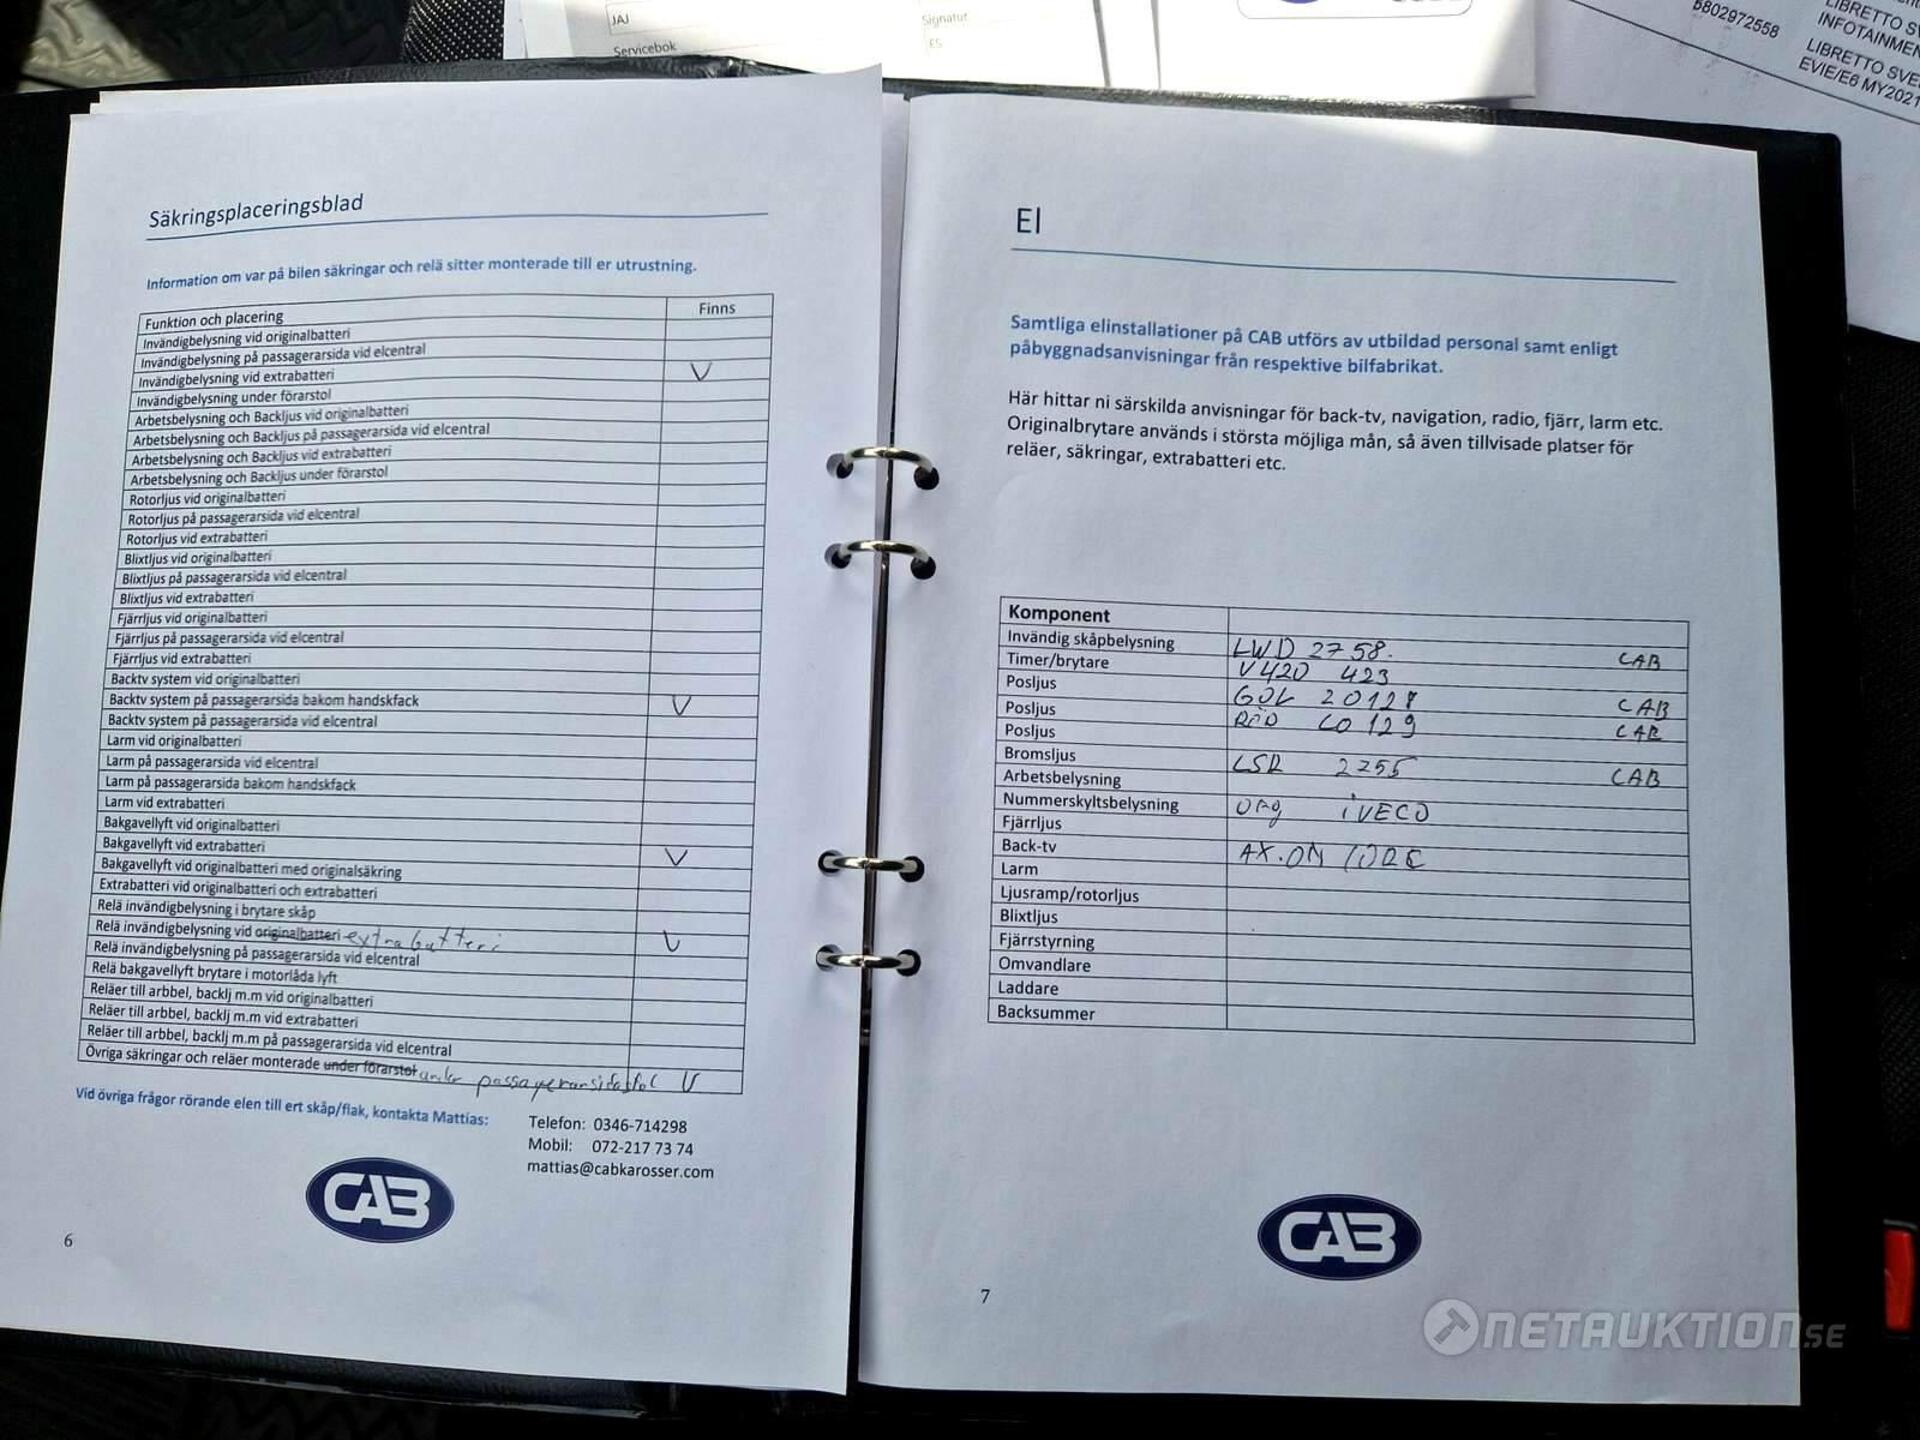 JAJ
Servicebok
Signatut
ES
5802972558
LIBRETTO
INFOTAINMEN
LIBRETTO SVE
EVIE/E6 MY2021
Säkringsplaceringsblad
Information om var på bilen säkringar och relä sitter monterade till er utrustning.
Funktion och placering Finns
Invändigbelysning vid originalbatteri
Invändigbelysning på passagerarsida vid elcentral
Invändigbelysning vid extrabatteri V
Invändigbelysning under förarstol
Arbetsbelysning och Backljus vid originalbatteri
Arbetsbelysning och Backljus på passagerarsida vid elcentral
Arbetsbelysning och Backljus vid extrabatteri
Arbetsbelysning och Backljus under förarstol
Rotorljus vid originalbatteri
Rotorljus på passagerarsida vid elcentral
Rotorljus vid extrabatteri
Blixtljus vid originalbatteri
Blixtljus på passagerarsida vid elcentral
Blixtljus vid extrabatteri
Fjärrljus vid originalbatteri
Fjärrljus på passagerarsida vid elcentral
Fjärrljus vid extrabatteri
Backtv system vid originalbatteri
Backtv system på passagerarsida bakom handskfack V
Backtv system på passagerarsida vid elcentral
Larm vid originalbatteri
Larm på passagerarsida vid elcentral
Larm på passagerarsida bakom handskfack
Larm vid extrabatteri
Bakgavellyft vid originalbatteri
Bakgavellyft vid extrabatteri V
Bakgavellyft vid originalbatteri med originalsäkring
Extrabatteri vid originalbatteri och extrabatteri
Relä invändigbelysning i brytare skåp
Relä invändigbelysning vid originalbatteri extrabatteri V
Relä invändigbelysning på passagerarsida vid elcentral
Relä bakgavellyft brytare i motorlåda lyft
Reläer till arbbel, backlj m.m vid originalbatteri
Reläer till arbbel, backlj m.m vid extrabatteri
Reläer till arbbel, backlj m.m på passagerarsida vid elcentral
Övriga säkringar och reläer monterade under förarstol under passagerarsidastol V
Vid övriga frågor rörande elen till ert skåp/flak, kontakta Mattias:
Telefon: 0346-714298
Mobil: 072-217 73 74
mattias@cabkarosser.com
CAB
6
El
Samtliga elinstallationer på CAB utförs av utbildad personal samt enligt
påbyggnadsanvisningar från respektive bilfabrikat.
Här hittar ni särskilda anvisningar för back-tv, navigation, radio, fjärr, larm etc.
Originalbrytare används i största möjliga mån, så även tillvisade platser för
reläer, säkringar, extrabatteri etc.
Komponent
Invändig skåpbelysning LWD 2758. CAB
Timer/brytare V420 423
Posljus GUL 20128 CAB
Posljus RÖD 20129 CAB
Posljus
Bromsljus LSR 2755 CAB
Arbetsbelysning
Nummerskyltsbelysning org iVECO
Fjärrljus
Back-tv AX.ON
Larm
Ljusramp/rotorljus
Blixtljus
Fjärrstyrning
Omvandlare
Laddare
Backsummer
CAB
7
NETAUKTION.SE